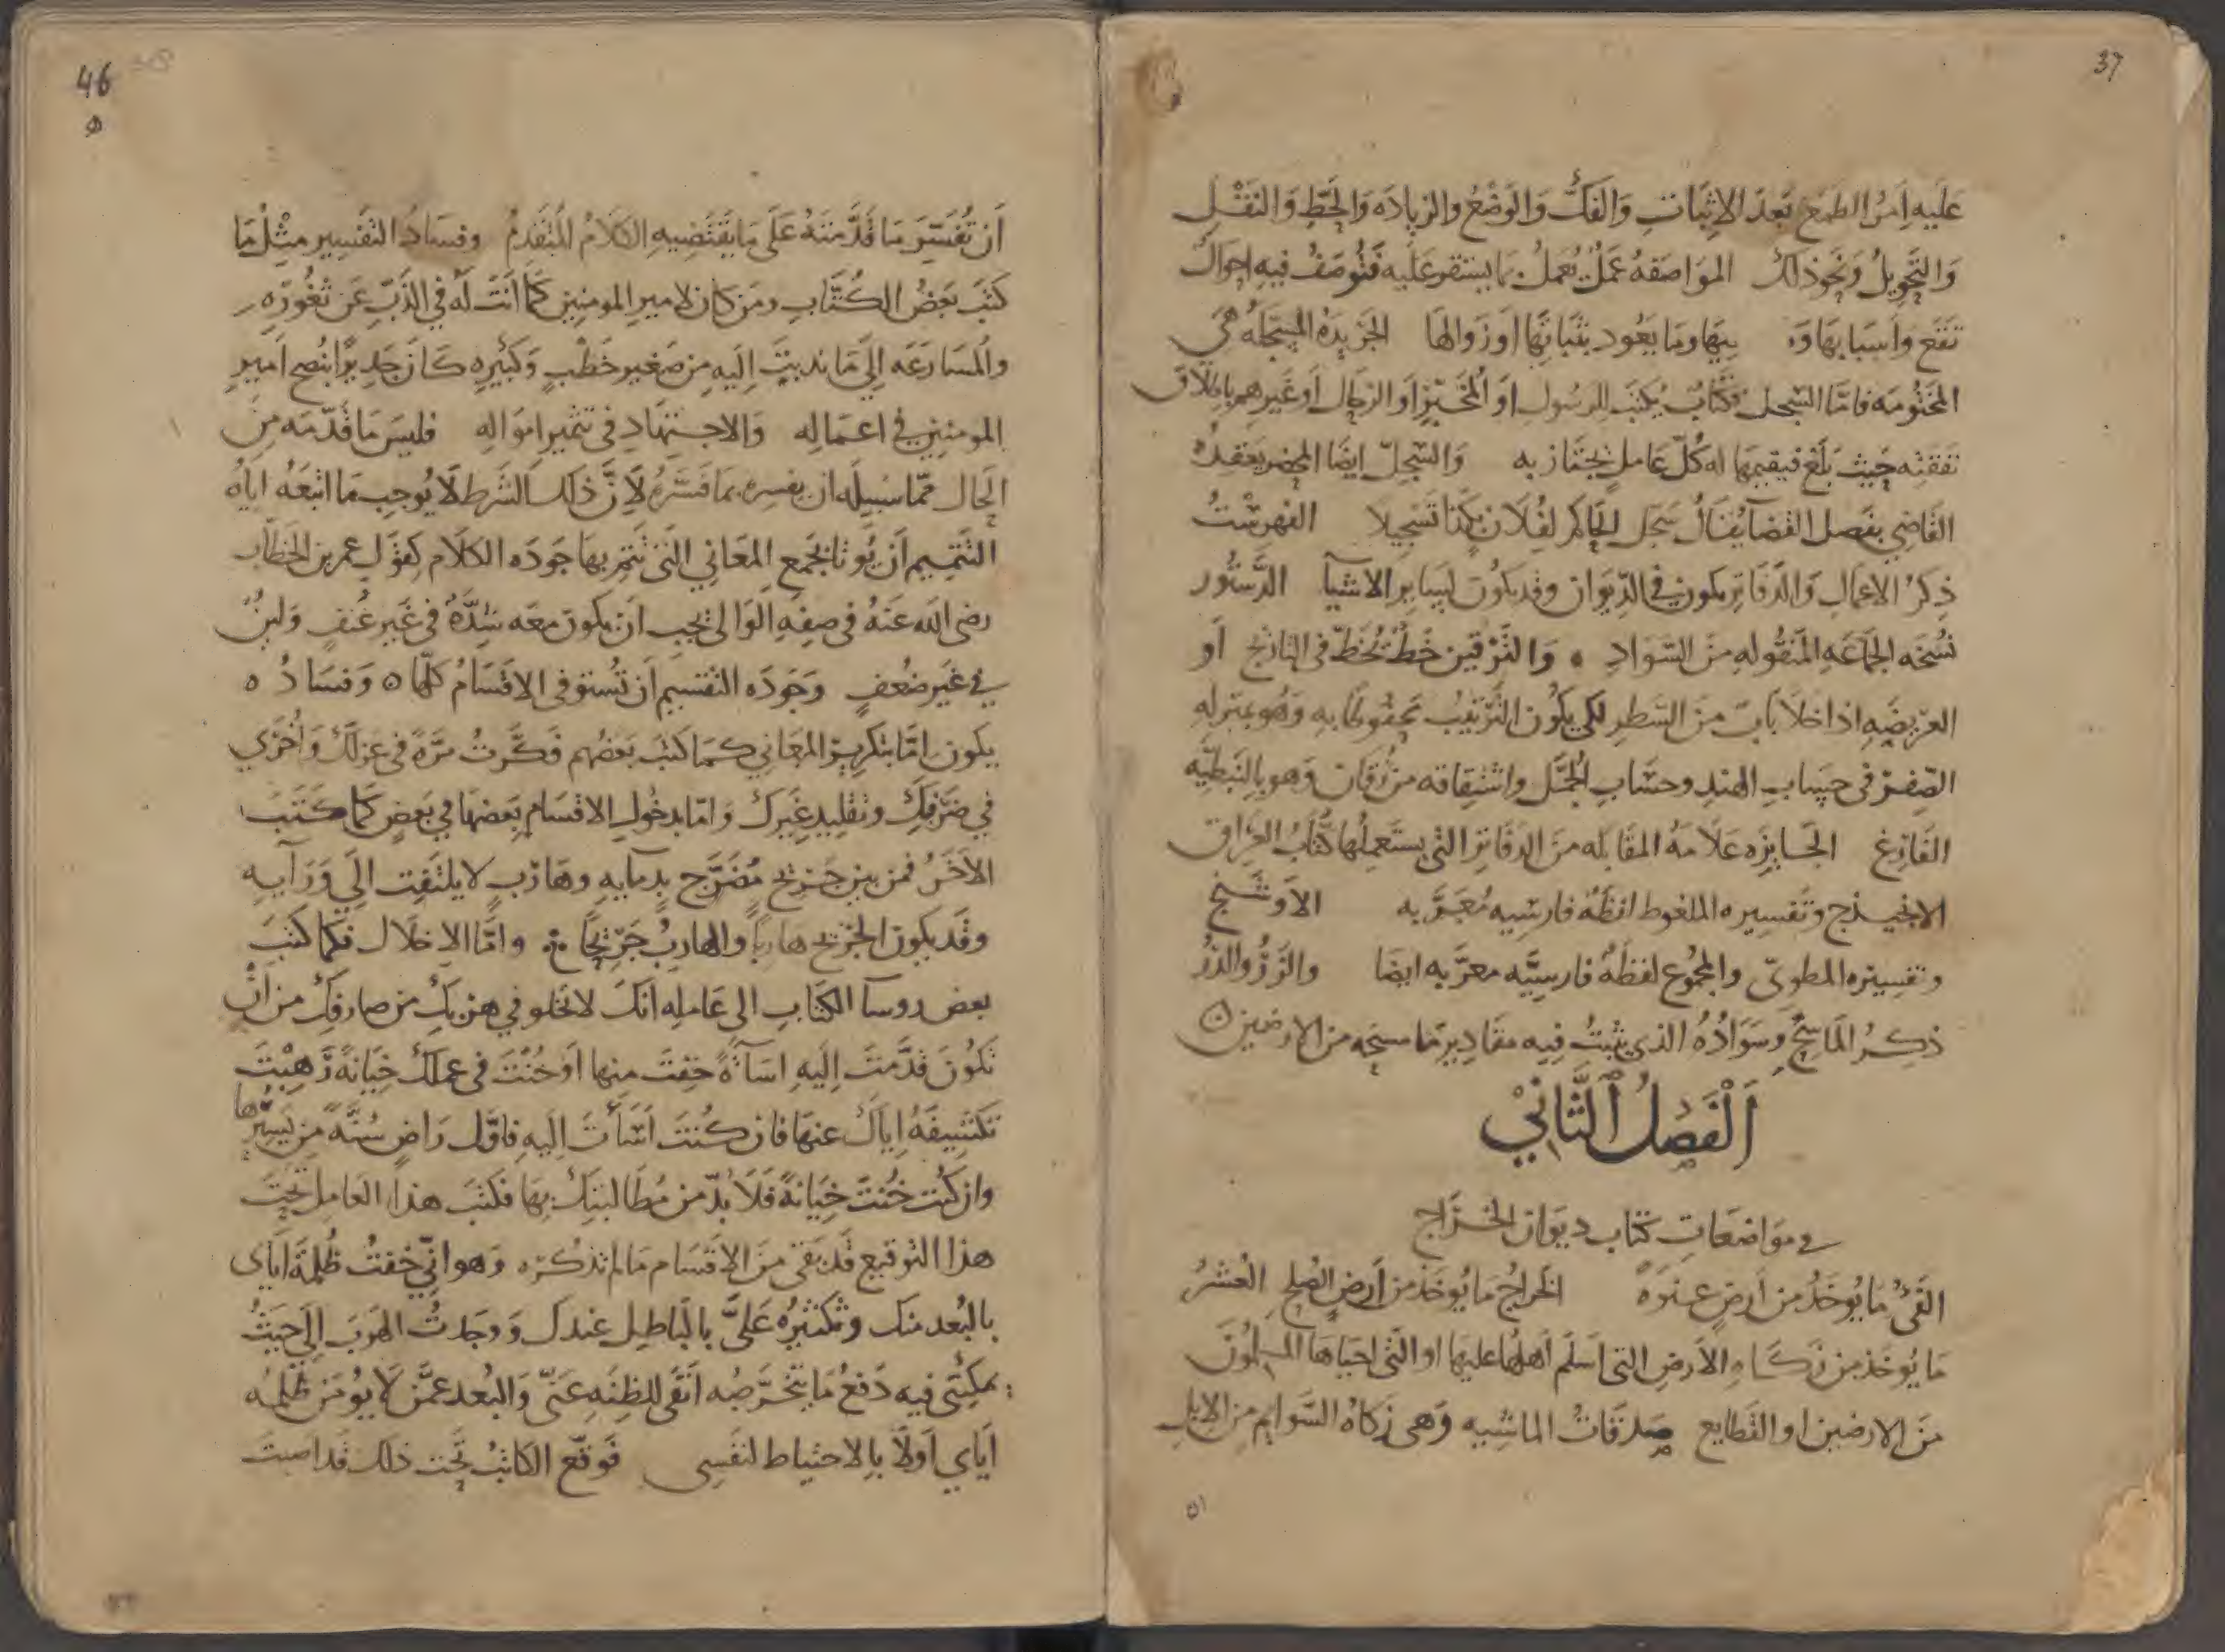 37
عليه امرُ الطمع بَعدَ الاِثباتِ وَالفَكُّ وَالوَضْعُ والزيادَه وَالحَطّ وَالنَقْلِ
وَالتَحويلُ وَنَحو ذلك الموَاصَفهُ عَمَلٌ يُعمَلُ فتُوصَفُ فيه احوَالٌ
تَقَع وَاَسبَابهَا وَمَا يَعُود بثَبَاتِهَا اَو زوَالهَا الجَريدَهُ المسَجّلهُ هَىَ
المختُومَه فامّا السّجل فكتَابٌ يُكتَبُ للرسُولِ او المُخَبّر اَو الرحّال اَو غَيرهم باِطلَاق
نفَقتِه حَيث بَلَغ فيُقيمهَا له كُلّ عَاملٍ يَجتَاز به وَالسّجلّ ايضًا المحضَر يَعقدُهُ
القَاضِي بفَصل القضآء يُقَالُ سَجّل الحَاكم لفُلَان بكَذا تَسجيلًا الفهرسْتُ
ذِكرُ الاعمال وَالدّفَاتر يكون في الدّيوَان وقد يكُون لسَاير الاَشيآ الدَّستُور
نسُخَه الجَمَاعَهِ المَنقُولهِ منَ السّوَادِ ۰ وَالتَّرْقين خَطٌّ يُخَطّ في التاريج اَو
العرَيضَهِ اذا خلَا بَابٌ منَ السَّطرِ لكي يكُون التَّرتيبُ محفُوظًا به وَهُو بمَنزلهِ
الصّفرِ في حِسَابِ الهندِ وحسَابِ الجُمَّل واشتقاقه من رَقَان وَهو بالنَبطيّه
الفَارغ الجَايزَه عَلاَمهُ المقَابَله منَ الدفاترِ التى يستَعملُهَا كُتّابُ العِرَاق
وتفسيره الملفوط لفظَةٌ فارسيه مُعَرَّبه الاَوشَنج
وتفسيره المطوىّ والمجمُوع لفظَةٌ فارسيَّه معَرّبه ايضًا
ذِكرُ المَاسِحِ وَسَوَادُهُ الذى يثبتُ فِيه مقَادير مَا مسحَه من الاَرضين
اَلْفَصْلُ اَلثَّانِيْ
في مَوَاضَعَاتِ كُتّاب ديوَان الخرَاج
الفَىْءُ مَا يُوخَذُ من اَرضِ عنوَةً الخَراجُ مَا يُوخَذُ من اَرضِ الصُّلح العُشرُ
مَا يُوخَذ من زكَاهِ الاَرضِ التى اَسلَم اَهلهَا عليها او التى احيَاهَا المسلمُونَ
منَ الارضين او القَطايع صَدقَاتُ الماشيه وَهى زكَاهُ السّوَايم من الاِبل
٥١
46
اَن تُفسّر مَا قَدَّمتَهُ عَلَى مَا يَقتَضيهِ الكَلَامُ المُتقَدِمُ وفسَادُ التفَسير مثْل مَا
كَتَبَ بَعَضُ الكُتَّابِ ومَن كَان لامير المومنين كَمَا اَنتَ لَهُ في الذَبّ عَن ثُغُورهِ
وَالمُسَارَعَه اِلَى مَا نُدِبتَ اليه من صَغير خَطْبٍ وَكَبيره كَان جَديرًا بنُصح اَميرِ
المومنِين في اعمَاله وَالاجتهَادِ في تثمير اموَاله فليسَ مَا قدّمَه من
الحَال ممّا سَبيله ان يفسره بما فَسَّرهُ لاَنَّ ذلك الشَرط لَا يُوجب مَا اتبَعَهُ ايّاهُ
التَّتميم اَن يُوتا بجَمع المعَاني التى تَتِم بهَا جَودَه الكلَام كقَول عمر بن الخطاب
رضى الله عَنهُ في صفهِ الوَالى يجب اَن يكون معَه شِدَّةٌ في غَير عُنفٍ وَلِينٌ
في غَير ضعُفٍ وجَودَه التقسيم اَن تُستَوفى الاقسَامُ كلّهَا ه وَفسَادُه
يكون امَّا بتكرير المعَاني كمَا كتَبَ بَعضهم فَكَّرتُ مَرّةً في عزلكَ وَاُخرَي
في صَرفِكَ وتقليدِ غَيرك وَامّا بدخُول الاقسَام بَعضهَا في بَعضٍ كَمَا كَتَبَ
الاخَرُ فمن بين جَريحٍ مُضَرَّجٍ بدمَايهِ وهَاربٍ لا يلتَفِت اِلَى وَرَآيهِ
وقَد يكون الجَريح هاربًا والهَاربُ جَريحًا ۰ وامَّا الاِخلَال فكمَا كَتَبَ
بعض روسآ الكتَاب الى عَامله انكَ لا تَخلُو في هَربكَ من صَارفِكَ من اَن
تَكُونَ قدَّمتَ اليهِ اِسَآءَةً خِفتَ منهَا اَو خُنْتَ في عمَلكَ خيَانهً رَهبْتَ
تكشيفَهُ ايّاكَ عنهَا فان كُنتَ اَسَأتَ اليهِ فاوّل رَاضٍ سُنَّةً من يَسيرُهَا
وان كُنتَ خُنتَ خيَانهً فَلاَ بدّ من مُطَالبتكَ بهَا فكتَبَ هذا العَامل تَحتَ
هذا التوقيع قَد بَقى منَ الاقسَام مَا لم تذكُره وَهو اَنّي خفتُ ظُلمَهُ اياى
بالبُعد منكَ وتكثيرُه عَليَّ بالباطل عندكَ وَوجَدتُ الهَرَبَ اِلَى حَيثُ
يمكننى فيه دَفعُ مَا يَتخَرَّصُه اَنَفَى للظنَّهِ عَنّى وَالبُعد عمَّن لَا يُومَن ظُلمُه
اَيّاي اَولَى بالاحتيَاط لنَفسى فوَقّع الكاتبُ تَحتَ ذلك قَد اصَبتَ